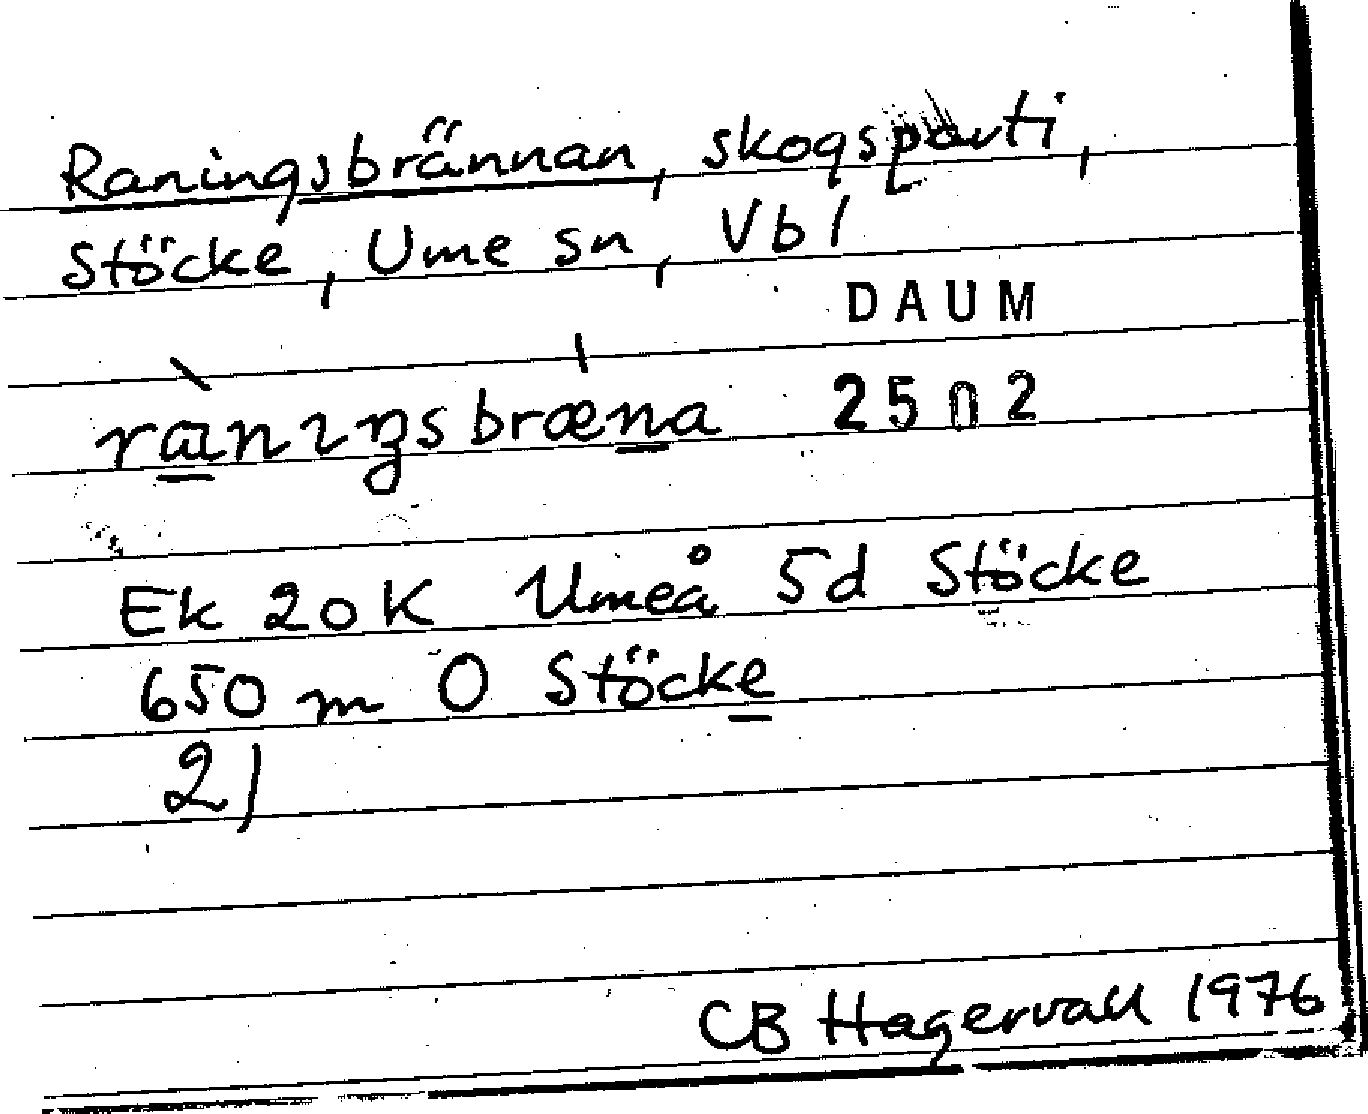 Raningsbrännan, skogsparti,
Stöcke, Ume sn, Vbl
DAUM
2502
Ek 20K Umeå 5d Stöcke
650 m O Stöcke
2)
CB Hagervall 1976